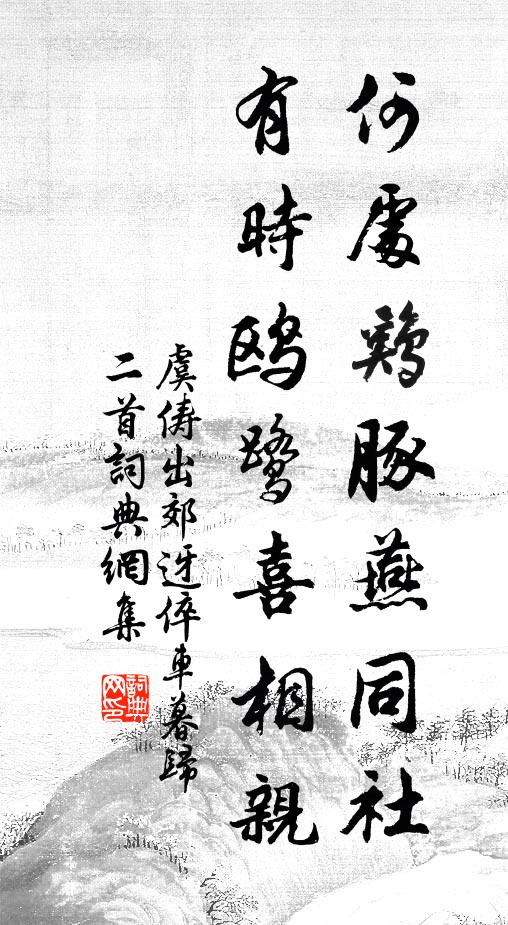 何處鷄豚燕同社
有時鷗鷺喜相親
虞儔出郊迓倅車暮歸
二首詞典網集
詞典网印